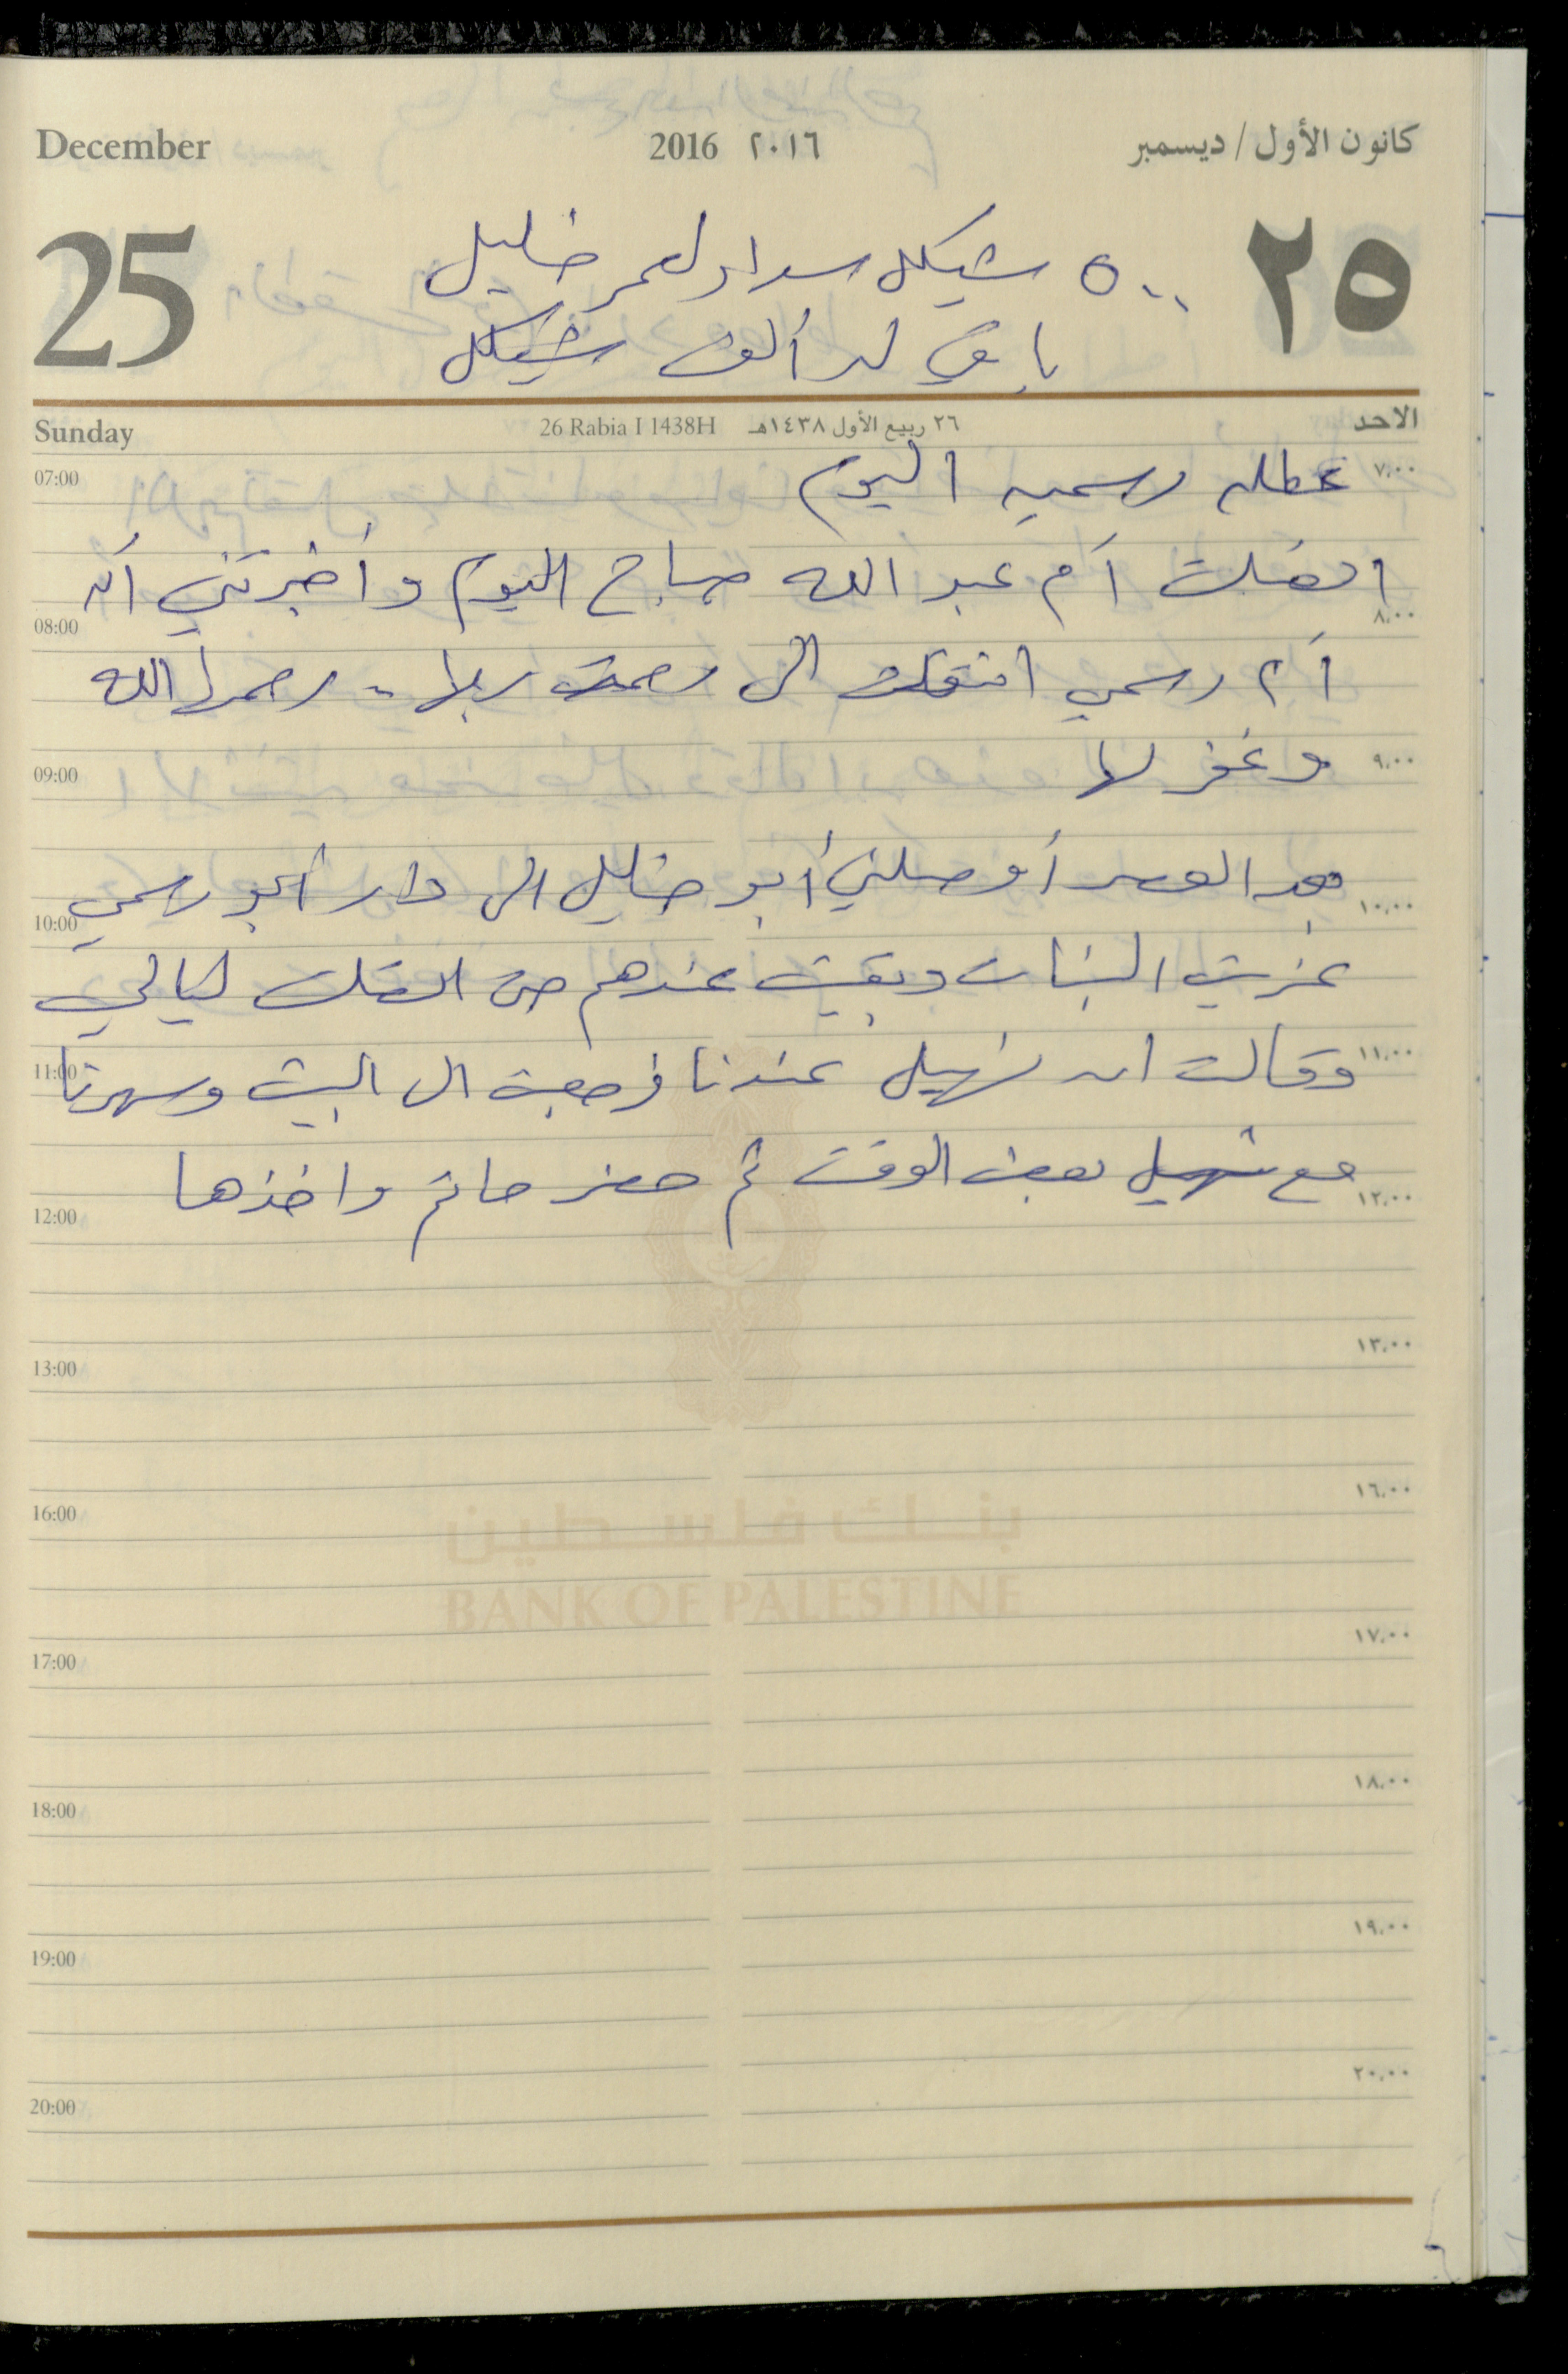 December 2016 ٢٠١٦ كانون الأول / ديسمبر
25 ٢٥
٥٠٠ شيكل سداد لعمر خليل
باقي له ألف شيكل
Sunday 26 Rabia I 1438H ٢٦ ربيع الأول ١٤٣٨هـ الاحد
07:00 ٧,٠٠
عطله رسميه اليوم
اتصلت أم عبد الله صباح اليوم وأخبرتني أن
08:00 ٨,٠٠
أم رسمي انتقلت الى رحمة ربها - رحمها الله
وغفر لها
09:00 ٩,٠٠
بعد العصر أوصلني أبو خليل الى دار أبو رسمي
10:00 ١٠,٠٠
عزيت البنات وبقيت عندهم حتى اتصلت ليالي
وقالت ان نهيل عندنا فرجعت الى البيت وسهرنا
11:00 ١١,٠٠
مع نهيل بعض الوقت ثم حضر حاتم واخذها
12:00 ١٢,٠٠
13:00 ١٣,٠٠
16:00 ١٦,٠٠
بنك فلسطين
BANK OF PALESTINE
17:00 ١٧,٠٠
18:00 ١٨,٠٠
19:00 ١٩,٠٠
20:00 ٢٠,٠٠